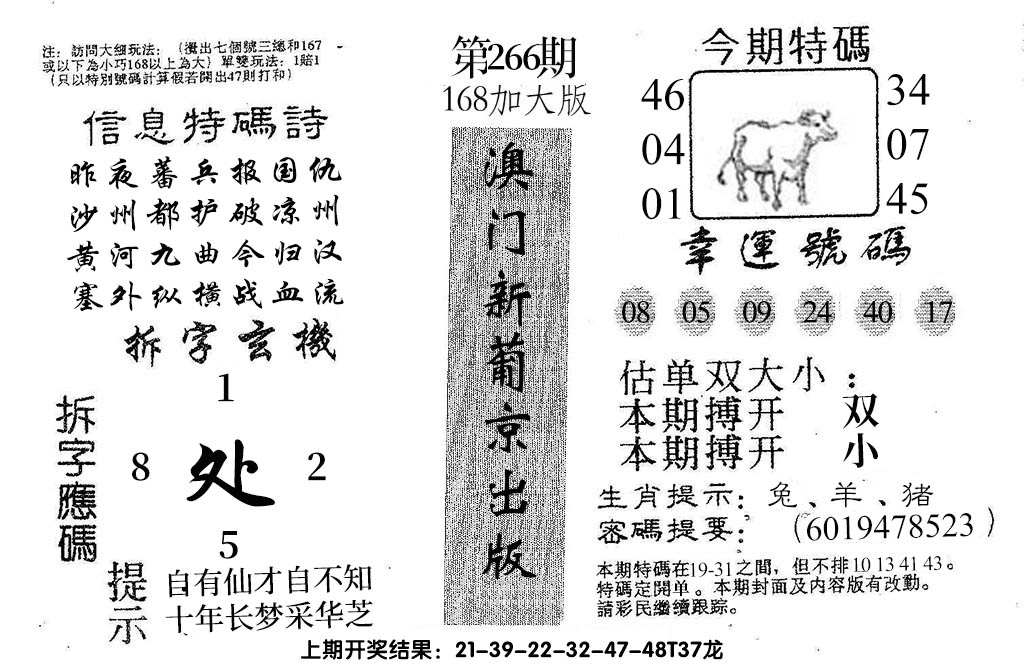 注：訪問大細玩法：（攪出七個號三總和167
或以下為小巧168以上為大）單雙玩法：1賠1
（只以特別號碼計算假若開出47則打和）
信息特碼詩
昨夜蕃兵报国仇
沙州都护破凉州
黄河九曲今归汉
塞外纵横战血流
拆字玄機
拆字應碼
1
8 处 2
5
提示
自有仙才自不知
十年长梦采华芝
第266期
168加大版
澳门新葡京出版
今期特碼
46 34
04 07
01 45
幸運號碼
08 05 09 24 40 17
估单双大小：
本期搏开 双
本期搏开 小
生肖提示：兔、羊、猪
密碼提要：（6019478523）
本期特碼在19-31之間，但不排10 13 41 43。
特碼定開单。本期封面及内容版有改動。
請彩民繼續跟踪。
上期开奖结果：21-39-22-32-47-48T37龙